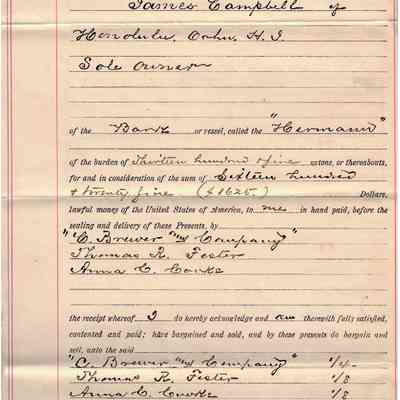 James Campbell of
Honolulu, Oahu, H. I.
Sole owner
of the Bark or vessel, called the "Hermann"
of the burden of Thirteen hundred & five tons, or thereabouts,
for and in consideration of the sum of Sixteen hundred
& twenty five ($1625.) Dollars,
lawful money of the United States of America, to me in hand paid, before the
sealing and delivery of these Presents, by
"C. Brewer and Company"
Thomas R. Foster
Anna C. Cooke
the receipt whereof I do hereby acknowledge and am therewith fully satisfied,
contented and paid; have bargained and sold, and by these presents do bargain and
sell, unto the said
"C. Brewer and Company" 1/4
Thomas R. Foster 1/8
Anna C. Cooke 1/8